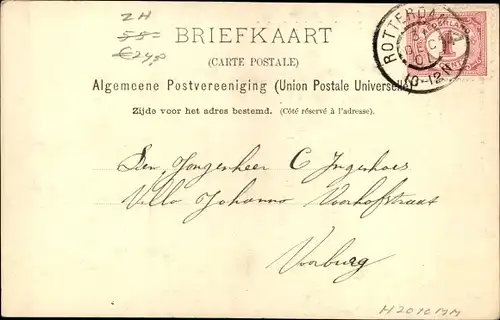 ZH
55-
€248
BRIEFKAART
(CARTE POSTALE)
Algemeene Postvereeniging (Union Postale Universelle)
Zijde voor het adres bestemd. (Côté réservé à l'adresse).
ROTTERDAM
DEC
10-12
NEDERLAND
1
CENT
Den Jongenheer C Ingenhoes
Villa Johanna Voorhofstraat
Voorburg
H2010MM